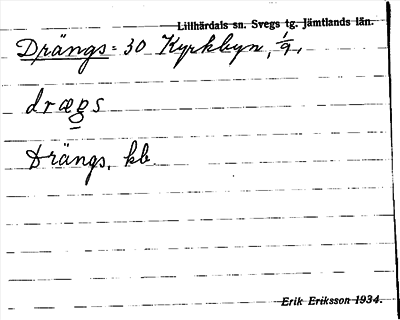 Lillhärdals sn. Svegs tg. Jämtlands län.
Drängs = 30 Kyrkbyn, 1/9,
drægs
Drängs, kb.
Erik Eriksson 1934.